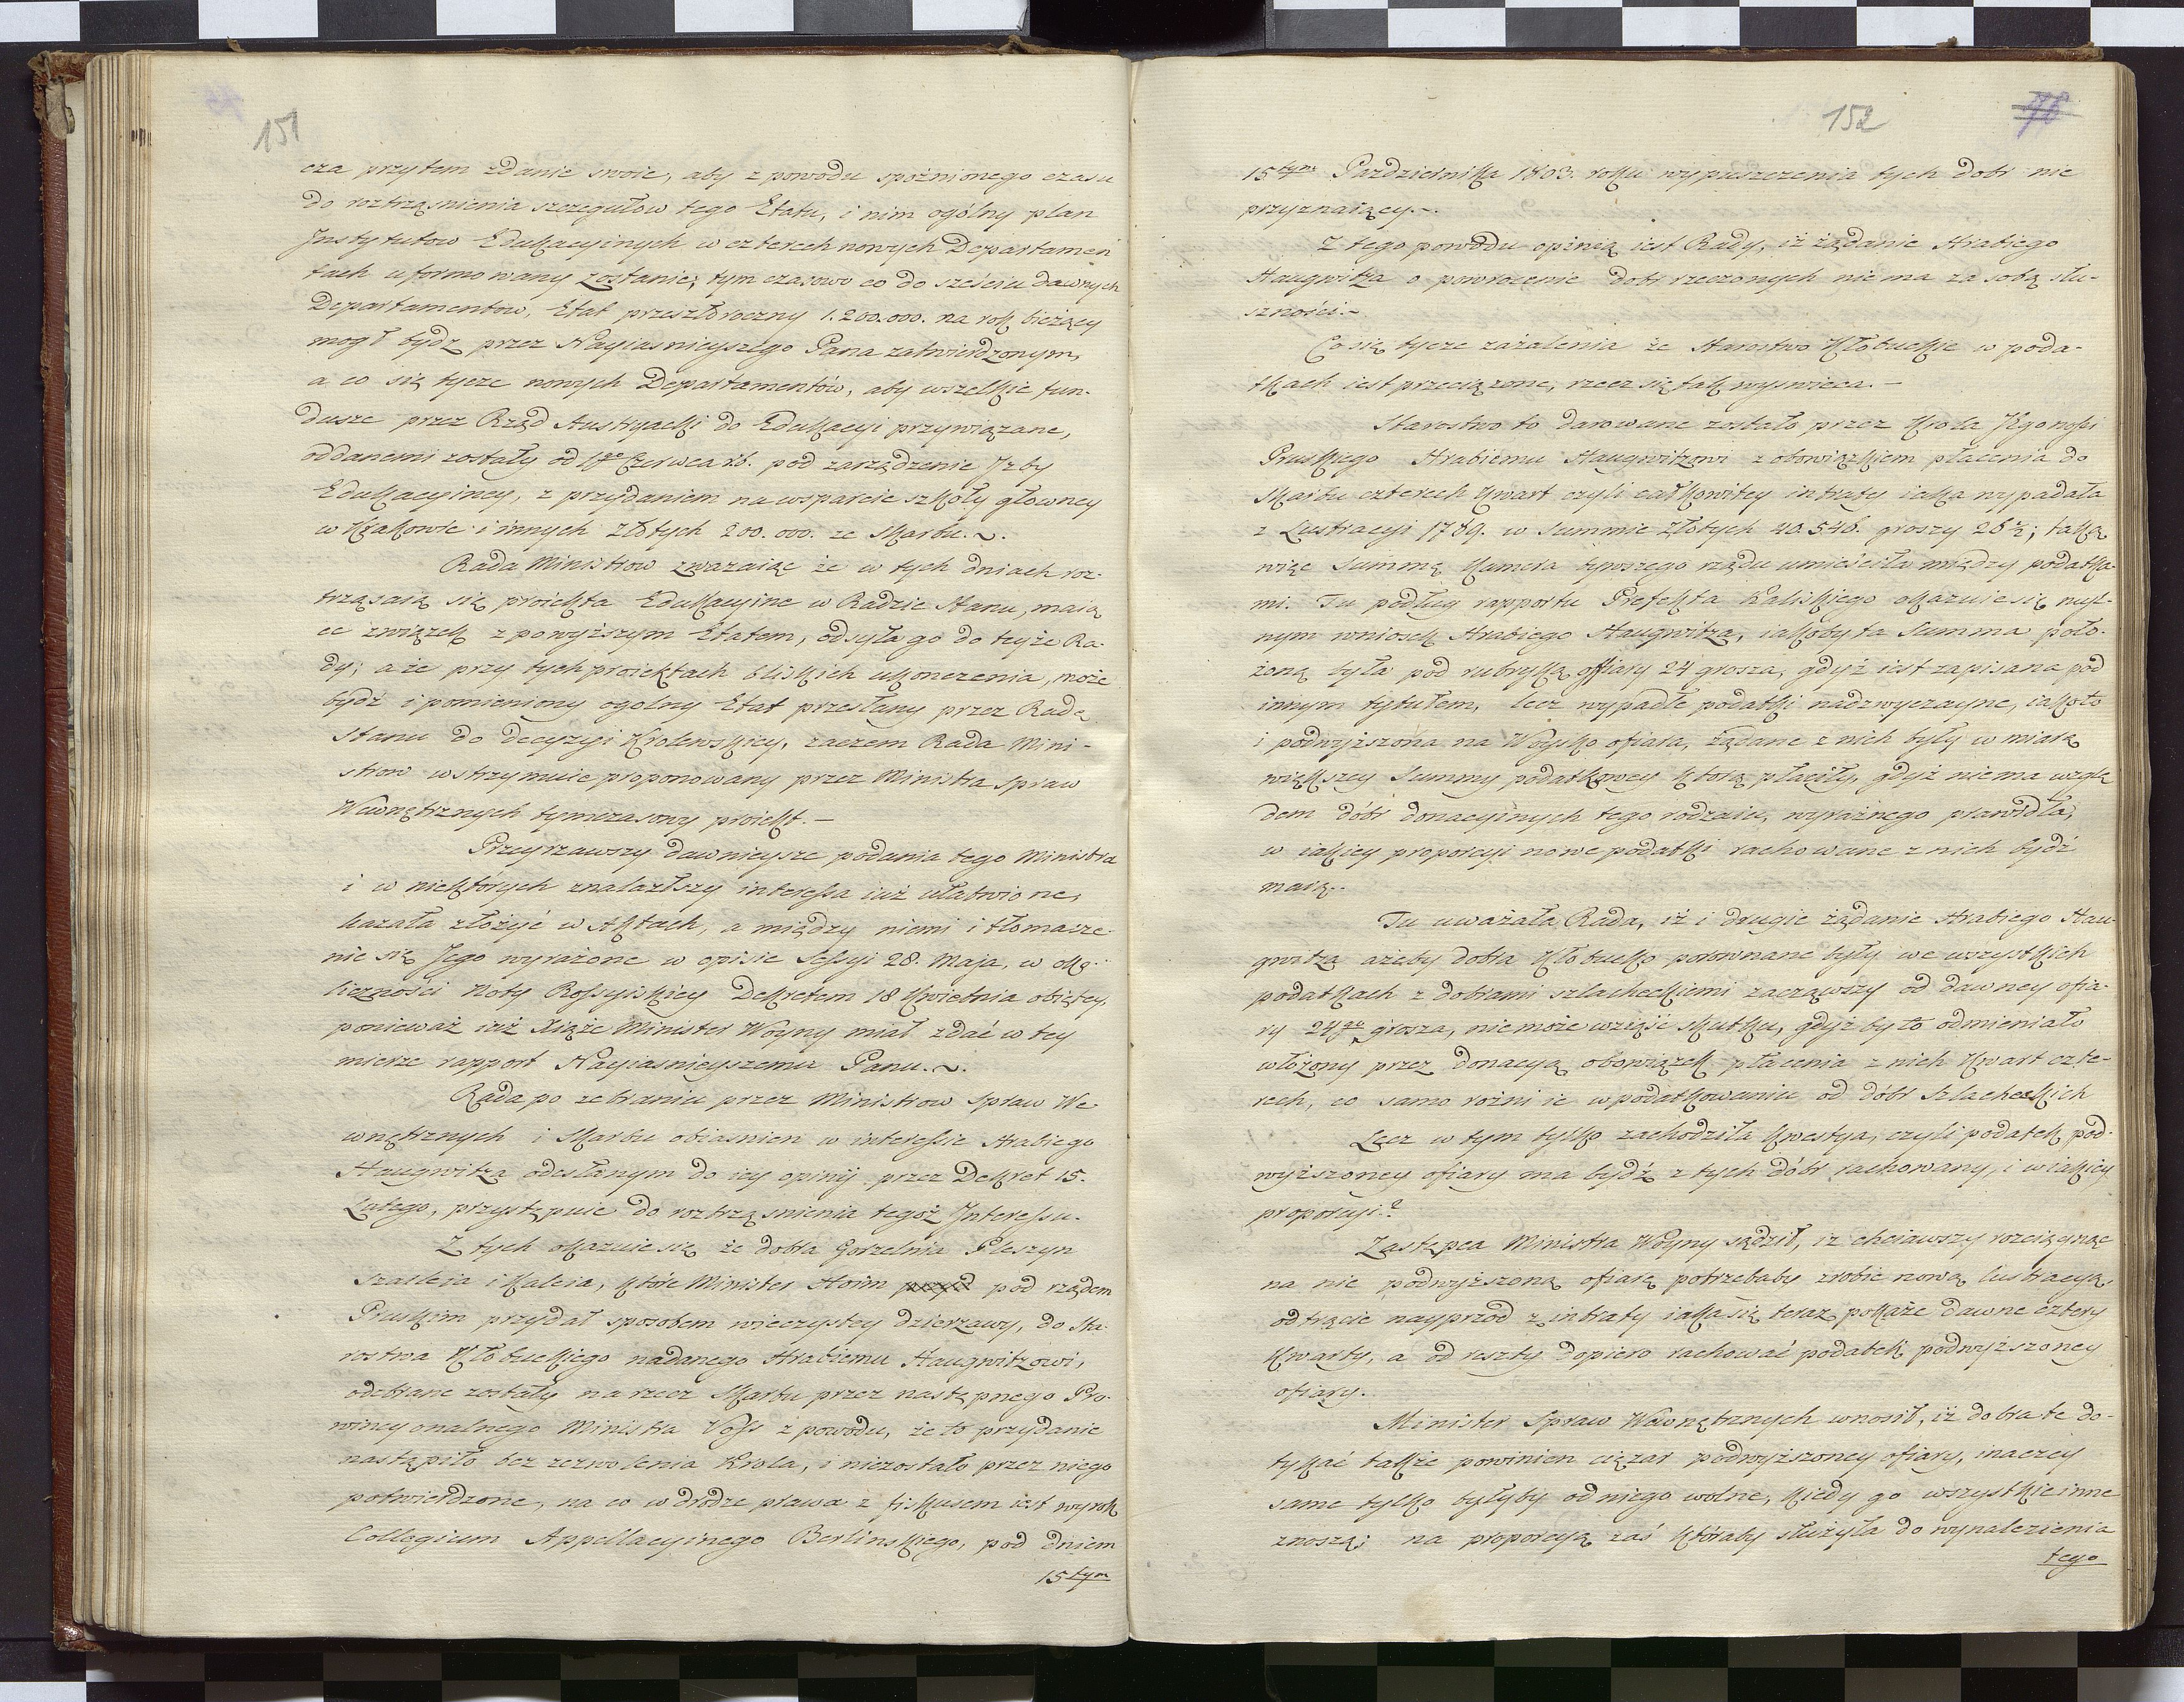 151
cza przytem zdanie swoie, aby z powodu spoźnionego czasu
do roztrząsnienia szczegułow tego Etatu, i nim ogólny plan
Instytutow Edukacyinych w czterech nowych Departamen
tach uformowany zostanie; tym czasowo co do sześciu dawnych
Departamentow, Etat przeszłoroczny 1.200.000. na rok bieżący
mogł bydz przez Nayiasnieyszego Pana zatwierdzonym,
a co się tycze nowych Departamentów, aby wszelkie fun-
dusze przez Rząd Austryacki do Edukacyi przywiązane,
oddanemi zostały od 1go Czerwca rb. pod zarządzenie Izby
Edukacyiney, z przydaniem na wsparcie szkoły głowney
w Krakowie i innych złotych 200.000. ze Skarbu.
Rada Ministrow zwazaiąc że w tych dniach roz-
trząsaią się proiekta Edukacyine w Radzie Stanu, maią
ce związek z powyższym Etatem, odsyła go do teyże Ra-
dy; a że przy tych proiektach bliskich ukonczenia, może
bydź i pomieniony ogolny Etat przesłany przez Radę
Stanu do decyzyi Krolewskiey, zaczem Rada Mini-
strow wstrzymuie proponowany przez Ministra Spraw
Wewnętrznych tymczasowy proiekt.—
Przeyrzawszy dawnieysze podania tego Ministra
i w niektórych znalazłszy interessa iuż ułatwione,
kazała złożyć w Aktach, a między niemi i tłomacze-
nie się Jego wyrażone w opisie Sessyi 28. Maja, w oko-
liczności Noty Rossyiskiey Dekretem 18 Kwietnia obiętey,
ponieważ iuż Xiąże Minister Woyny miał zdać w tey
mierze rapport Nayiasnieyszemu Panu.
Rada po zebraniu przez Ministrow Spraw We
wnętrznych i Skarbu obiasnien w interessie Hrabiego
Haugwitza odesłanym do iey opinij przez Dekret 15.
Lutego, przystępuie do roztrząsnienia tegoż Interessu.
Z tych okazuie się że dobra Gorzelnia Pleszyn
Szarleia i Kaleia, które Minister Hoim przyd pod rządem
Pruskim przydał sposobem wieczystey dzierzawy, do Sta-
rostwa Kłobuckiego nadanego Hrabiemu Haugwitzowi,
odebrane zostały na rzecz Skarbu przez następnego Pro-
wincyonalnego Ministra Voss z powodu, że to przydanie
nastąpiło bez zezwolenia Krola, i niezostało przez niego
potwierdzone, na co w drodze prawa z fiskusem iest wyrok
Collegium Appellacyinego Berlinskiego, pod dniem
15 tym
152
76
15tym Pazdziernika 1803. roku wypuszczenia tych dobr nie
przyznaiący.
Z tego powodu opinią iest Rady, iż żądanie Hrabiego
Haugwitza o powrocenie dobr rzeczonych nie ma za sobą słu-
szności.
Co się tycze zażalenia że Starostwo Kłobuckie w poda-
tkach iest przeciążone, rzecz się tak wyswieca.—
Starostwo to darowane zostało przez Krola Jegomości
Pruskiego Hrabiemu Haugwitzowi z obowiązkiem płacenia do
Skarbu czterech Kwart czyli całkowitey intraty iaka wypadała
z Lustracyi 1789. w Summie Złotych 40.546. groszy 26½; taką
więc Summę Kamera bywszego rządu umieściła między podatka-
mi. Tu podług rapportu Prefekta Kaliskiego okazuie się myl-
nym wniosek Hrabiego Haugwitza, iakoby ta Summa poło-
żoną była pod rubryką offiary 24 grosza, gdyż iest zapisana pod
innym tytułem, lecz wypadłe podatki nadzwyczayne, iakoto
i podwyższona na Woysko ofiara, żądane z nich były w miarę
większey Summy podatkowey którą płaciły, gdyż niema wzglę
dem dóbr donacyinych tego rodzaiu, wyraźnego prawidła,
w iakiey proporcyi nowe podatki rachowane z nich bydź
maią.
Tu uważała Rada, iż i drugie żądanie Hrabiego Hau-
gwitza ażeby dobra Kłobucko porównane były we wszystkich
podatkach z dobrami szlacheckiemi zacząwszy od dawney ofia-
ry 24go grosza, nie może wziąść skutku, gdyż by to odmieniało
włożony przez donacyą obowiązek płacenia z nich Kwart czte-
rech, co samo rożni ie w podatkowaniu od dóbr Szlacheckich
Lecz w tym tylko zachodziła kwestya, czyli podatek pod-
wyższoney ofiary ma bydź z tych dóbr rachowany, i w iakiey
proporcyi?
Zastępca Ministra Woyny sądził, iz chciawszy rozciągnąc
na nie podwyższoną ofiarę potrzebaby zrobić nową lustracyą,
odtrącić nayprzod z intraty iaka się teraz pokaże dawne cztery
Kwarty, a od reszty dopiero rachować podatek podwyższoney
ofiary.
Minister Spraw Wewnętrznych wnosił, iż dobra te do-
tykać także powinien ciężar podwyższoney ofiary, inaczey
same tylko byłyby od niego wolne, kiedy go wszystkie inne
znoszą; na proporcyą zaś któraby służyła do wynalezienia
tego